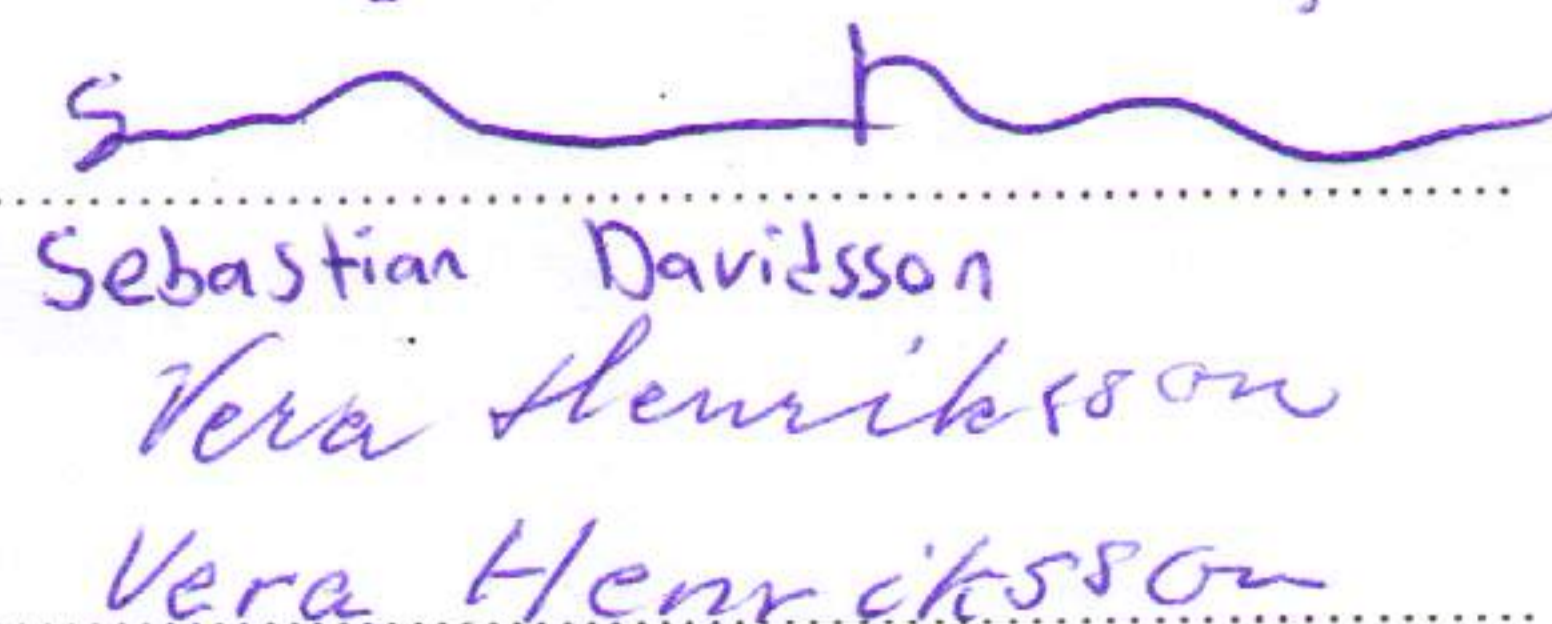 Sebastian Davidsson
Vera Henriksson
Vera Henriksson